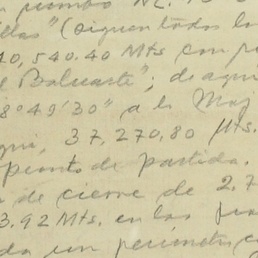 rumbo N.
llas" (siguen todos lo
10,540.40 Mts con
el Baluarte"; de aquí
8°49'30" a la Moj
37,270,80 Mts.
punto de partida.
de cierre de 2.7
3.92 Mts. en las
da un perímetro